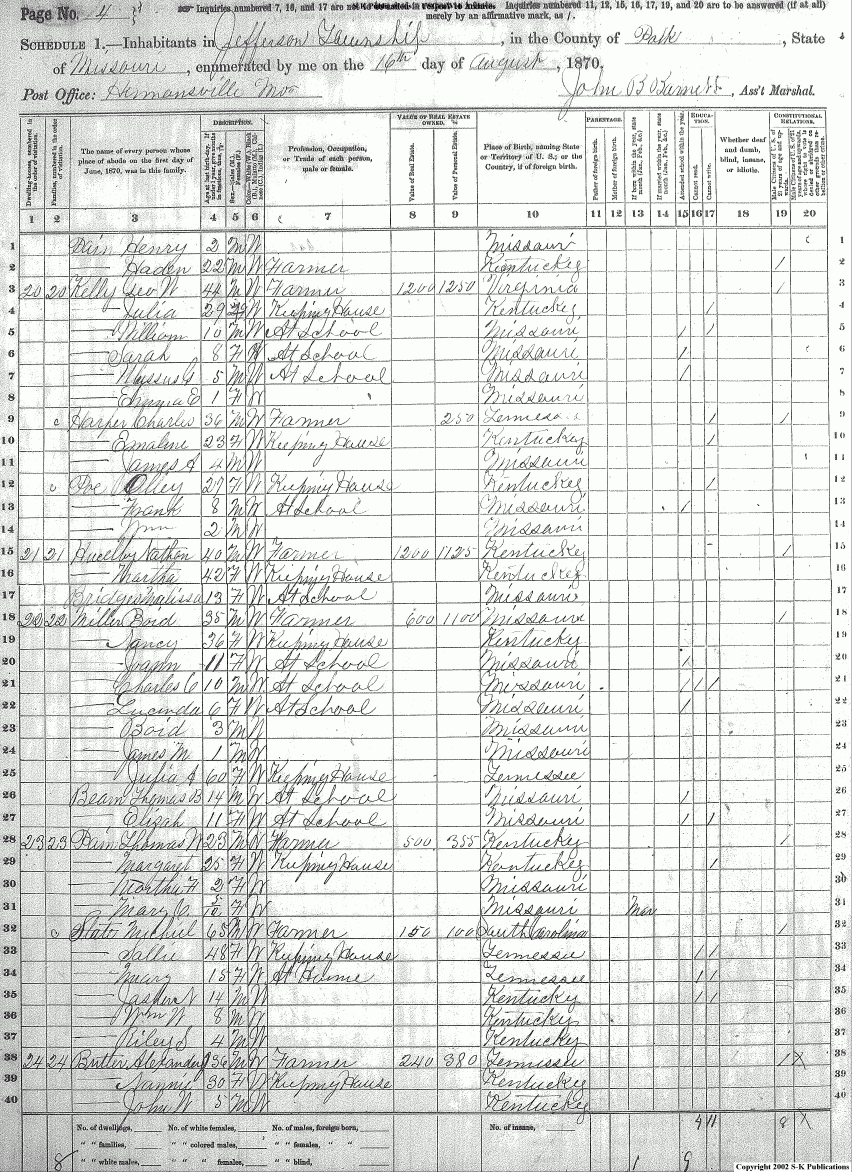 Page No. 4
Inquiries numbered 7, 16, and 17 are not to be asked in respect to infants. Inquiries numbered 11, 12, 15, 16, 17, 19, and 20 are to be answered (if at all)
merely by an affirmative mark, as /.
SCHEDULE 1.—Inhabitants in Jefferson Township, in the County of Polk, State
of Missouri, enumerated by me on the 16th day of August, 1870.
Post Office: Hermansville Mo John B Barnett, Ass't Marshal.
DESCRIPTION. VALUE OF REAL ESTATE OWNED. PARENTAGE. EDUCATION. CONSTITUTIONAL RELATIONS.
Dwellings, numbered in the order of visitation. Families, numbered in the order of visitation. The name of every person whose place of abode on the first day of June, 1870, was in this family. Profession, Occupation, or Trade of each person, male or female. Value of Real Estate. Value of Personal Estate. Place of Birth, naming State or Territory of U. S.; or the Country, if of foreign birth. Father of foreign birth. Mother of foreign birth. Attended school within the year. Cannot read. Cannot write. Whether deaf and dumb, blind, insane, or idiotic.
1 2 3 4 5 6 7 8 9 10 11 12 13 14 15 16 17 18 19 20
1 Henry 2 M W Missouri 1
2 — Haden 22 M W Farmer Kentucky / 2
3 20 20 Kelly Geo W 44 M W Farmer 1200 1250 Virginia / 3
4 — Julia 29 Keeping House Kentucky / 4
5 — William 10 M W At School Missouri / / 5
6 — Sarah 8 F W At School Missouri / 6
7 — 5 M W At School Missouri / 7
8 — Emma E 1 F W Missouri 8
9 Harper Charles 36 M W Farmer 250 / / 9
10 — Emaline 23 F W Keeping House Kentucky / 10
11 — James A 4 M W Missouri 11
12 Olley 27 F W Keeping House Kentucky / 12
13 — Frank 8 M W At School Missouri / 13
14 — Wm 2 M W Missouri 14
15 21 21 Nathan 40 M W Farmer 1200 1125 Kentucky / 15
16 — Martha 42 F W Keeping House Kentucky 16
17 Bridges Malissa 13 F W At School Missouri 17
18 22 22 Miller Boid 35 M W Farmer 600 1100 Missouri / 18
19 — Nancy 36 F W Keeping House Kentucky 19
20 — Joann 11 F W At School Missouri / 20
21 — Charles C 10 M W At School Missouri / / / 21
22 — Lucinda 6 F W At School Missouri / 22
23 — Boid 3 M W Missouri 23
24 — James M 1 M W Missouri 24
25 — Julia A 60 F W Keeping House Tennessee 25
26 Beam Thomas B 14 M W At School Missouri / 26
27 — Elizah 11 F W At School Missouri / / 27
28 23 23 Thomas W 23 M W Farmer 500 355 Kentucky / 28
29 — Margaret 25 F W Keeping House Kentucky / 29
30 — Martha F 2 F W Missouri 30
31 — Mary C. 5/12 F W Missouri Mar 31
32 65 M W Farmer 150 100 South Carolina / 32
33 — Sallie 48 F W Keeping House Tennessee / / 33
34 — Mary 15 F W At Home Tennessee / / 34
35 — Jasher N 14 M W Kentucky / / 35
36 — Wm W 8 M W Kentucky 36
37 — Riley S 4 M W Kentucky 37
38 24 24 Butler Alexander 36 M W Farmer 240 380 Tennessee / X 38
39 — Nannie 30 F W Keeping House Kentucky 39
40 — John W 5 M W Kentucky 40
No. of dwellings, No. of white females, No. of males, foreign born, No. of insane, 4 11 8 X
" " families, " " colored males, " " females, " "
8 " " white males, " " " females, " " blind, 1 9
Copyright 2002 S-K Publications